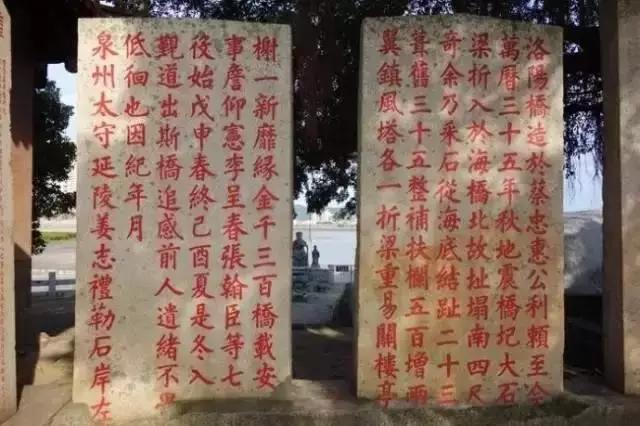 洛陽橋造於蔡忠惠公利賴至今
萬曆三十五年秋地震橋圮大石
梁折入於海橋北故址塌南四尺
奇余乃采石從海底結趾二十三
葺舊三十五整補扶欄五百增兩
翼鎮風塔各一折梁重易關樓亭
榭一新靡緣金千三百橋載安
事詹仰憲李呈春張翰臣等七
役始戊申春終己酉夏是冬入
覲道出斯橋追感前人遺緒不
低徊也因紀年月
泉州太守延陵姜志禮勒石岸左